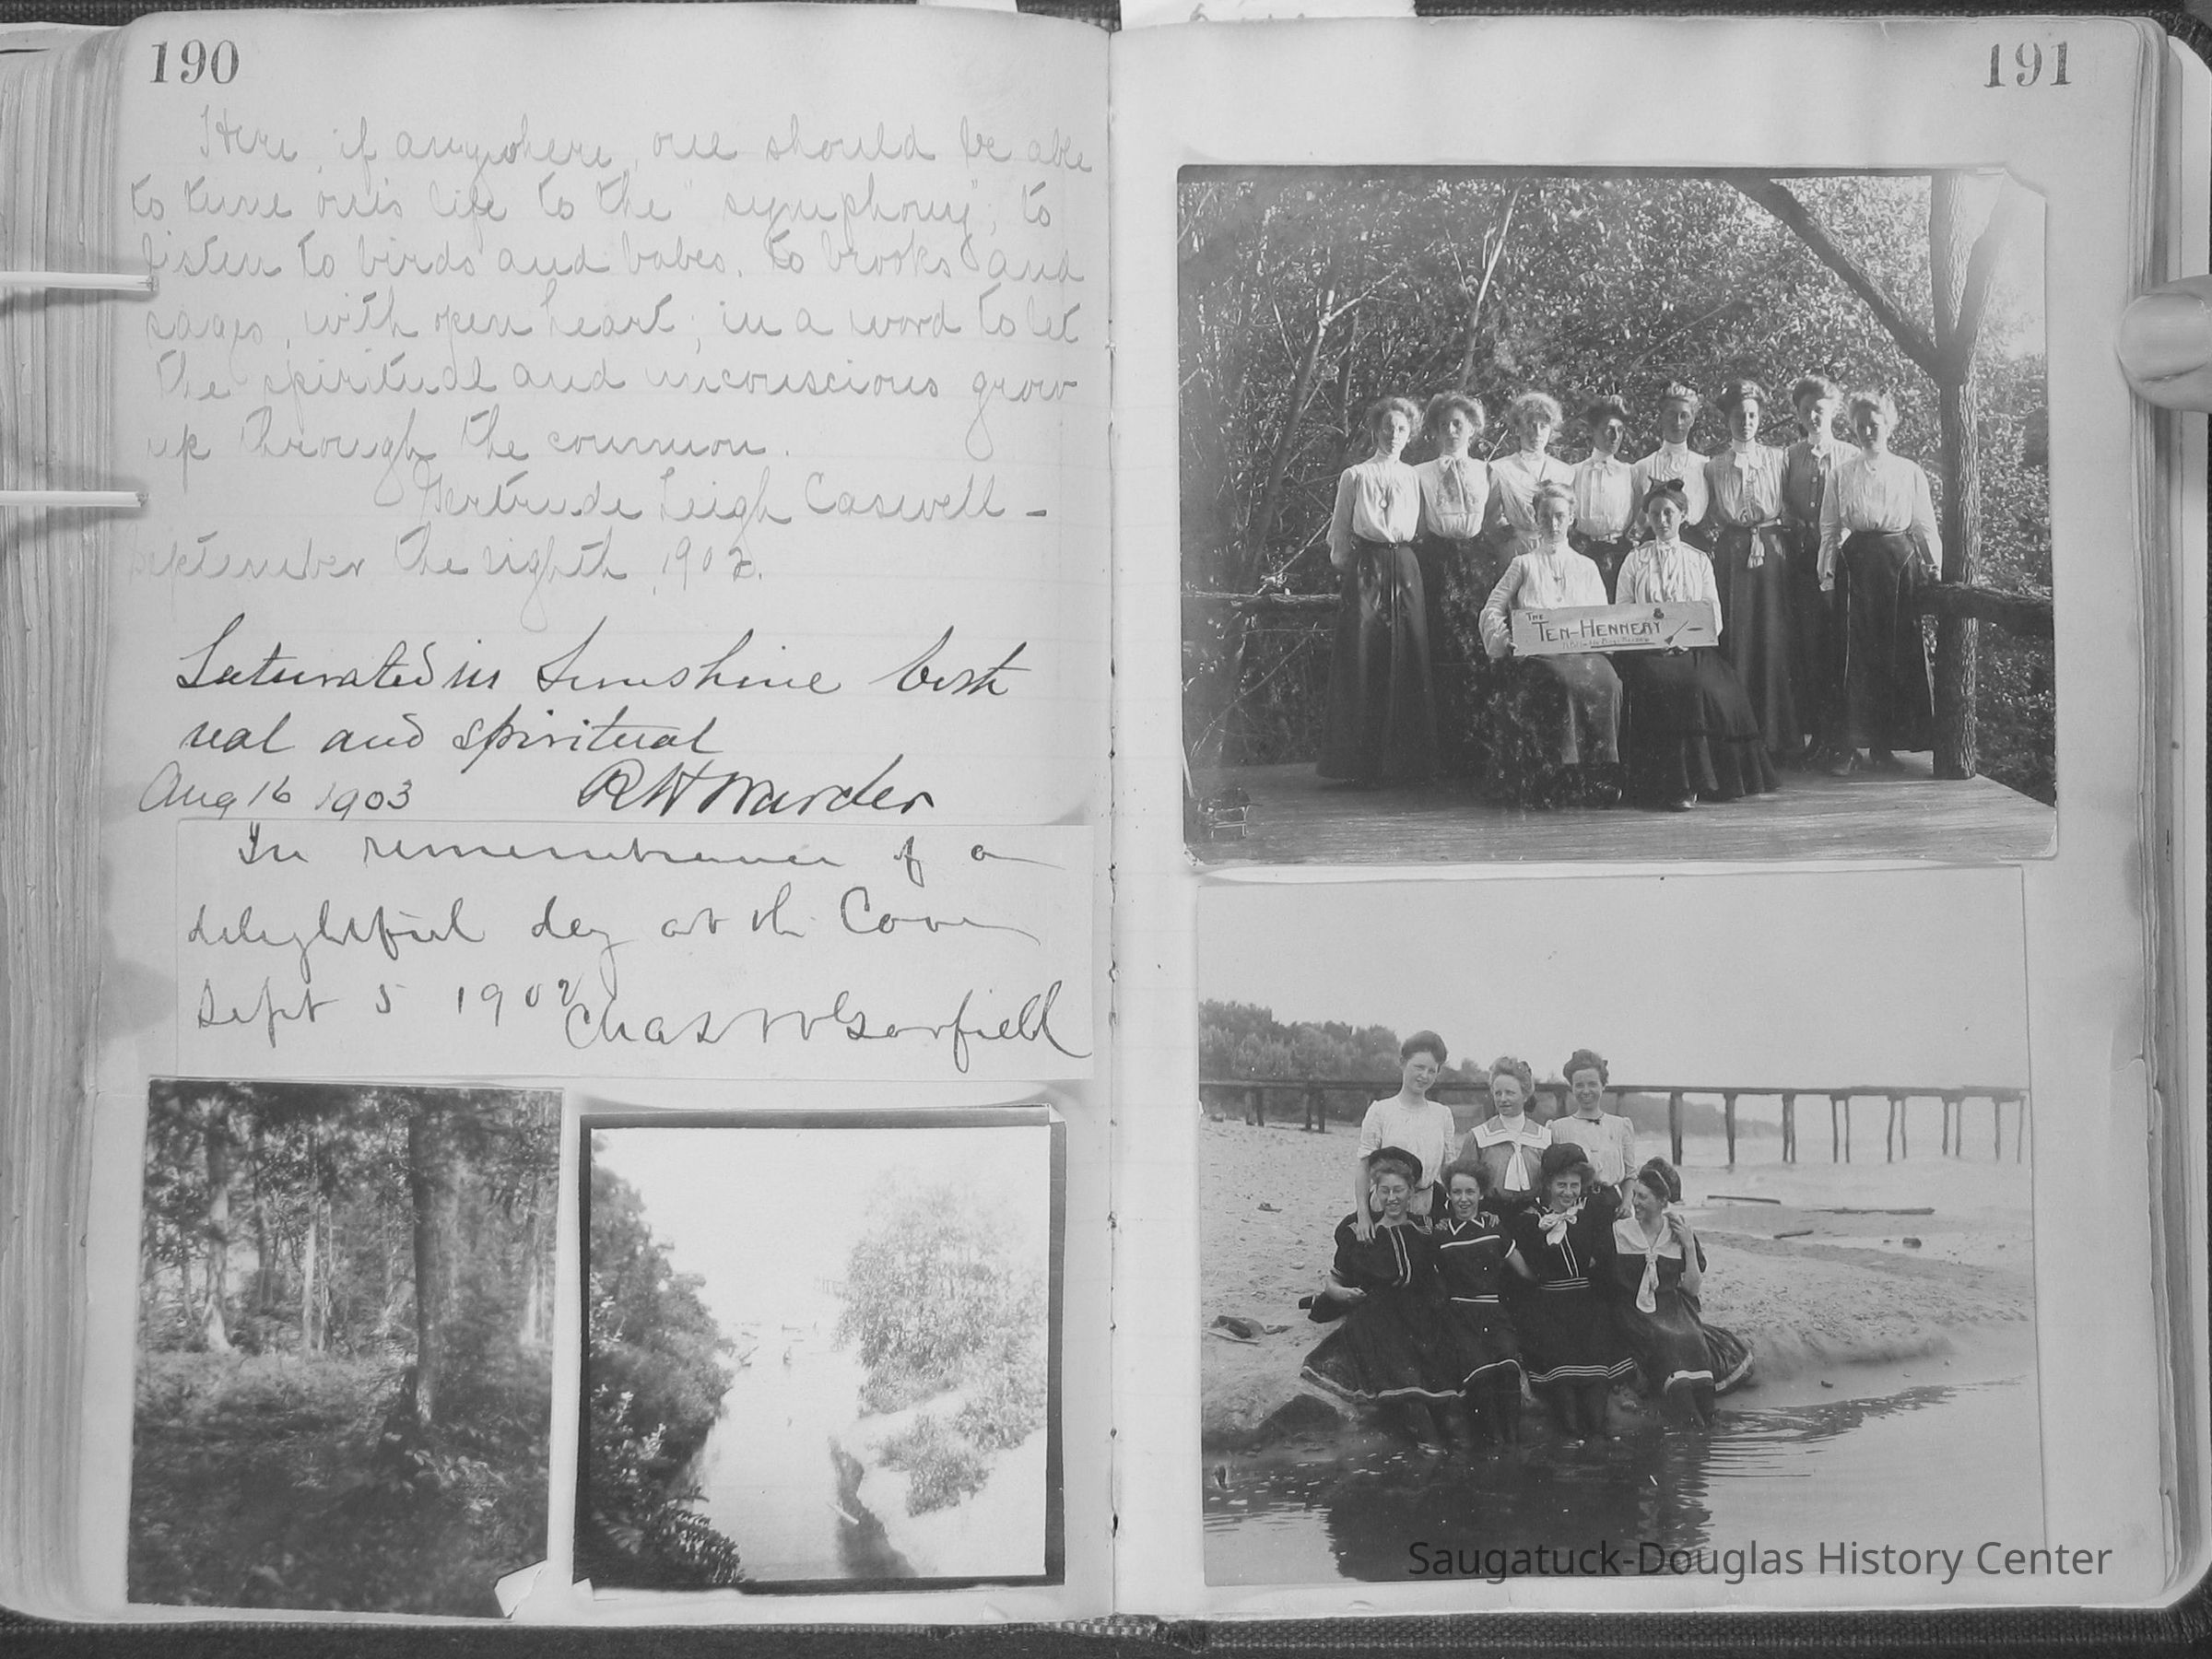 190
Here, if anywhere, one should be able
to tune one's life to the "symphony", to
listen to birds and babes, to brooks and
sages, with open heart; in a word to let
the spiritual and unconscious grow
up through the common.
Gertrude Leigh Caswell -
September the eighth, 1902.
Saturated in Sunshine both
real and spiritual
Aug 16 1903 R H Warder
In remembrance of a
delightful day at the Cove
Sept 5 1902 Chas W Garfield
191
THE
TEN-HENNERY
Saugatuck-Douglas History Center